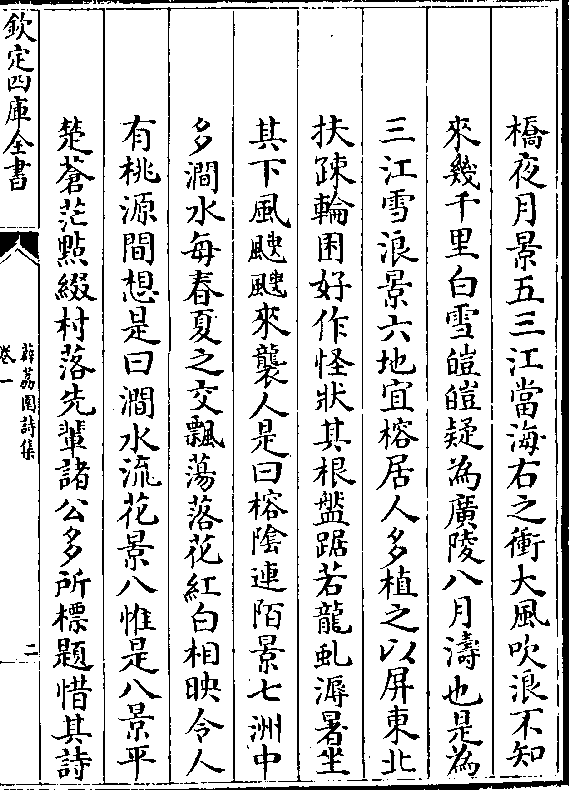 橋夜月景五三江當海右之衝大風吹浪不知
來幾千里白雪皚皚疑為廣陵八月濤也是為
三江雪浪景六地宜榕居人多植之以屏東北
扶疎輪囷好作怪狀其根盤踞若龍虬溽暑坐
其下風颼颼來襲人是曰榕陰連陌景七洲中
多澗水每春夏之交飄蕩落花紅白相映令人
有桃源間想是曰澗水流花景八惟是八景平
楚蒼茫點綴村落先輩諸公多所標題惜其詩
欽定四庫全書
薜荔園詩集
卷一
二